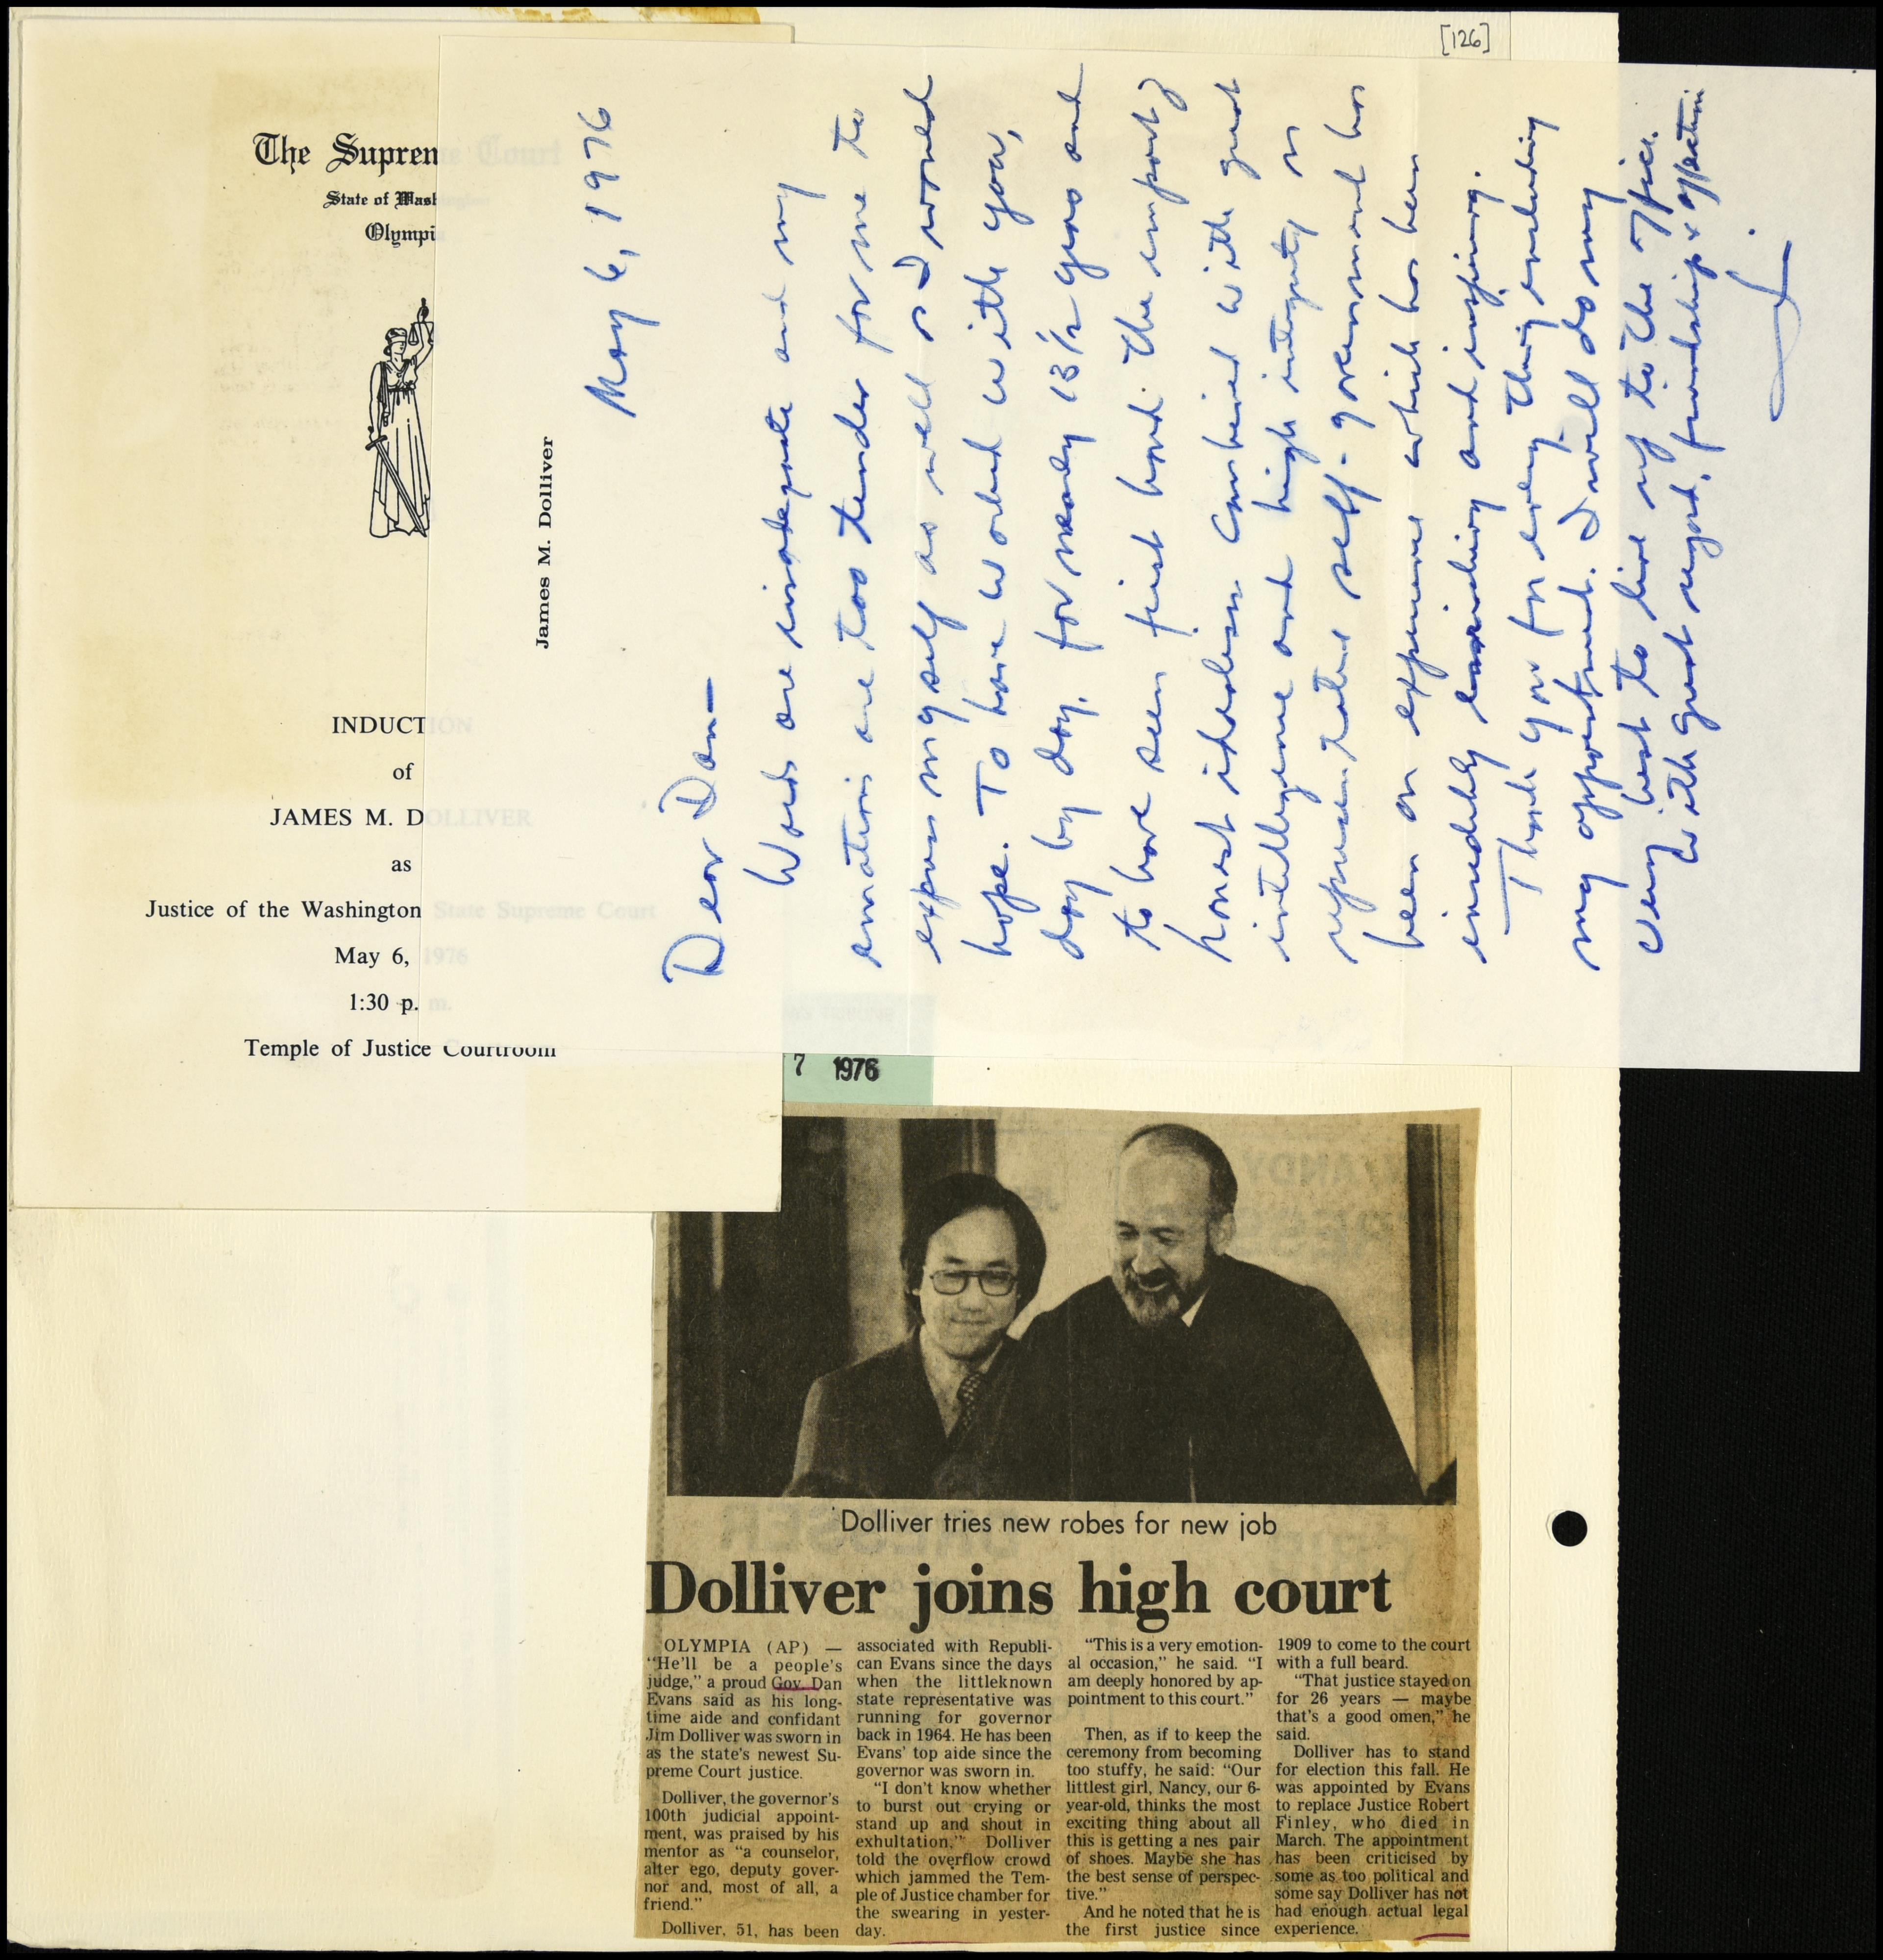 [126]
The Supreme Court
State of Washington
Olympia
INDUCTION
of
JAMES M. DOLLIVER
as
Justice of the Washington State Supreme Court
May 6, 1976
1:30 p. m.
Temple of Justice Courtroom
James M. Dolliver
May 6, 1976
Dear Dan—
Words are inadequate and my
emotions are too tender for me to
express myself as well as I would
hope. To have worked with you,
day by day, for nearly 13 1/2 years and
to have seen first hand the impact of
honest idealism combined with great
intelligence and high integrity on
representative self-government has
been an experience which has been
incredibly enriching and inspiring.
Thank you for everything including
my appointment. I will do my
very best to live up to the office.
With great regard, friendship & affection
Jim
7 1976
Dolliver tries new robes for new job
Dolliver joins high court
OLYMPIA (AP) —
"He'll be a people's
judge," a proud Gov. Dan
Evans said as his long-
time aide and confidant
Jim Dolliver was sworn in
as the state's newest Su-
preme Court justice.
Dolliver, the governor's
100th judicial appoint-
ment, was praised by his
mentor as "a counselor,
alter ego, deputy gover-
nor and, most of all, a
friend."
Dolliver, 51, has been
associated with Republi-
can Evans since the days
when the littleknown
state representative was
running for governor
back in 1964. He has been
Evans' top aide since the
governor was sworn in.
"I don't know whether
to burst out crying or
stand up and shout in
exhultation," Dolliver
told the overflow crowd
which jammed the Tem-
ple of Justice chamber for
the swearing in yester-
day.
"This is a very emotion-
al occasion," he said. "I
am deeply honored by ap-
pointment to this court."
Then, as if to keep the
ceremony from becoming
too stuffy, he said: "Our
littlest girl, Nancy, our 6-
year-old, thinks the most
exciting thing about all
this is getting a nes pair
of shoes. Maybe she has
the best sense of perspec-
tive."
And he noted that he is
the first justice since
1909 to come to the court
with a full beard.
"That justice stayed on
for 26 years — maybe
that's a good omen," he
said.
Dolliver has to stand
for election this fall. He
was appointed by Evans
to replace Justice Robert
Finley, who died in
March. The appointment
has been criticised by
some as too political and
some say Dolliver has not
had enough actual legal
experience.